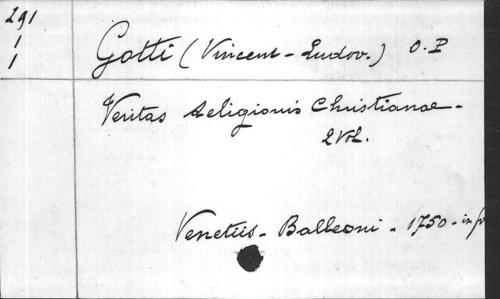 291
1
1
Gotti (Vincent-Ludov.) O.P
Veritas Religionis Christianae -
2 Vol.
Venetiis - Balleoni - 1750 - in fo